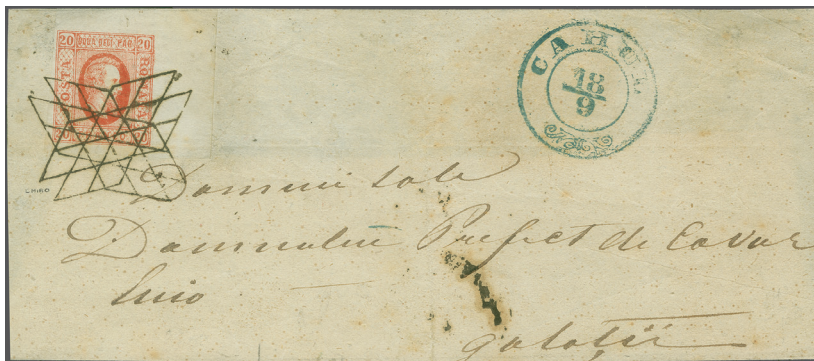 20 DOUA DECI PAR 20
POSTA
ROMANA
CAHUL
18
9
Domnii sale
Domnului Prefect de Covur
luio
galatii